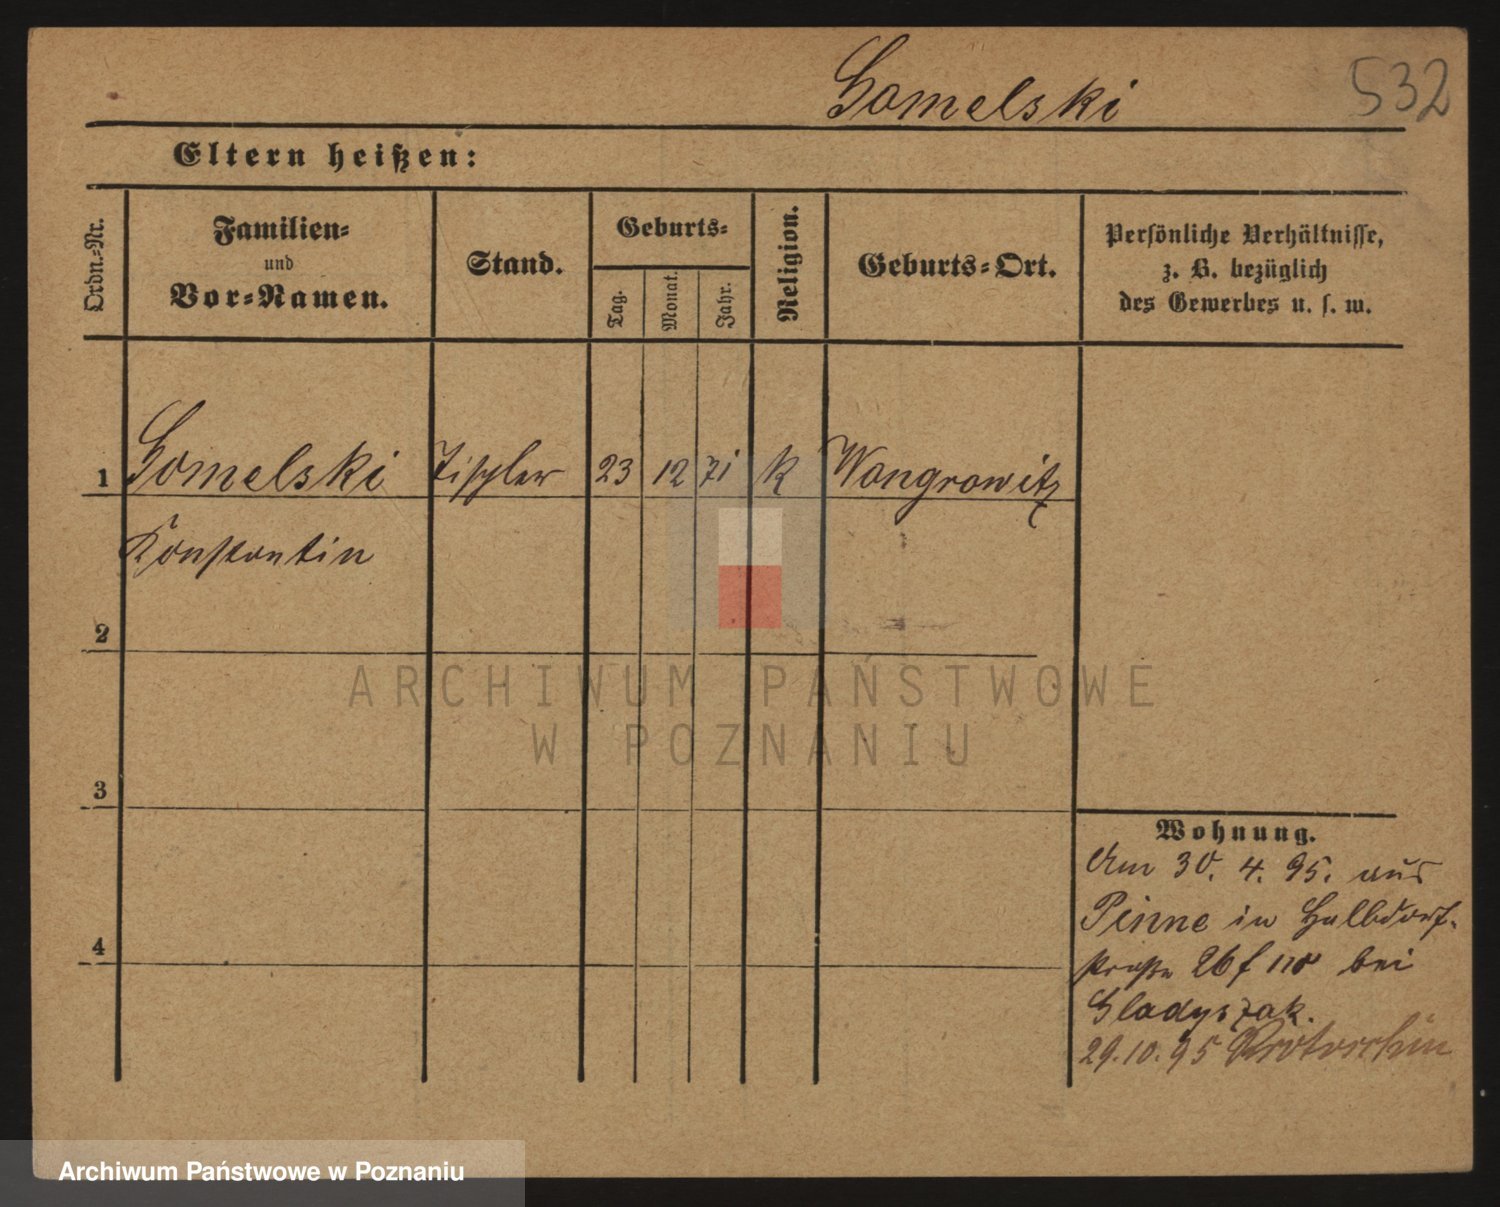 Gomelski
532
Eltern heißen:
Ordn.-Nr.
Familien-
und
Vor-Namen.
Stand.
Geburts-
Tag.
Monat.
Jahr.
Religion.
Geburts-Ort.
Persönliche Verhältnisse,
z. B. bezüglich
des Gewerbes u. s. w.
1 Gomelski Tischler 23 12 71 k Wongrowitz
Konstantin
2
3
4
Wohnung.
Am 30. 4. 95. aus
Pinne in Halbdorf-
straße 26 f bei
Gladyszak.
29.10.95 Krotoschin
ARCHIWUM PAŃSTWOWE
W POZNANIU
Archiwum Państwowe w Poznaniu